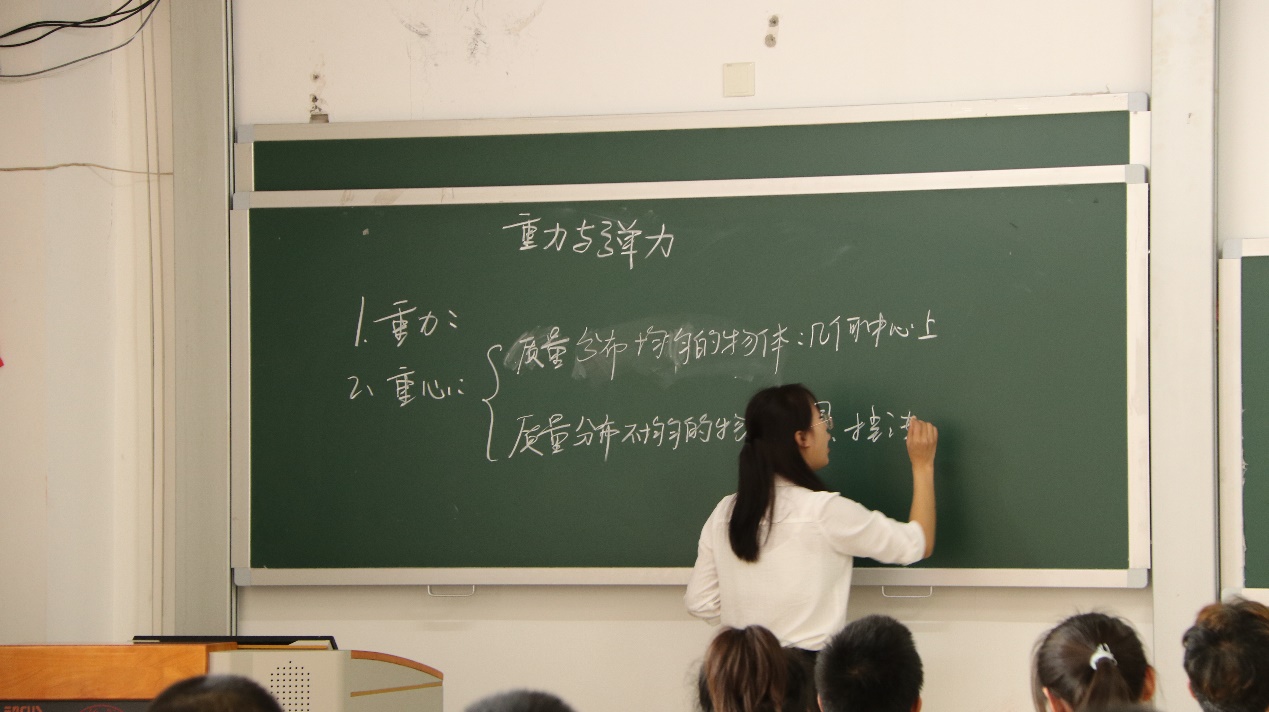 重力与弹力
1. 重力：
2、重心：
质量分布均匀的物体：几何中心上
质量分布不均匀的物 悬挂法
FOCUS